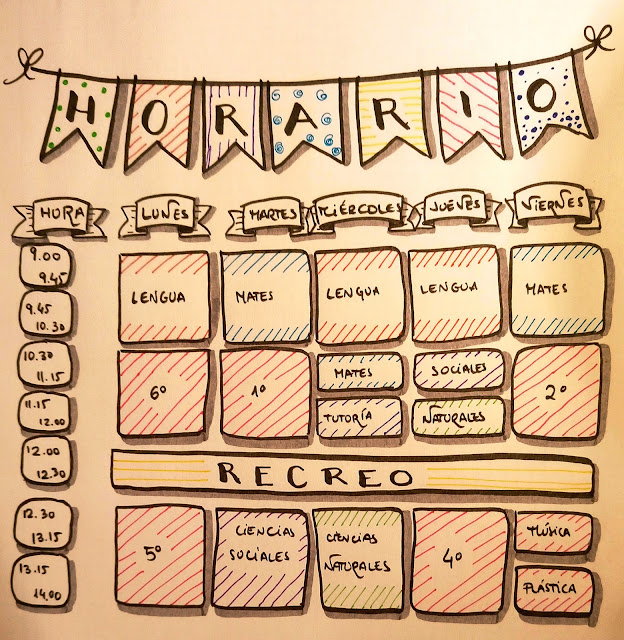 HORARIO
HORA LUNES MARTES MIÉRCOLES JUEVES VIERNES
9.00
9.45
LENGUA MATES LENGUA LENGUA MATES
9.45
10.30
10.30
11.15
6º 1º MATES SOCIALES 2º
11.15
12.00
TUTORÍA NATURALES
12.00
12.30
RECREO
12.30
13.15
5º CIENCIAS SOCIALES CIENCIAS NATURALES 4º MÚSICA
13.15
14.00
PLÁSTICA